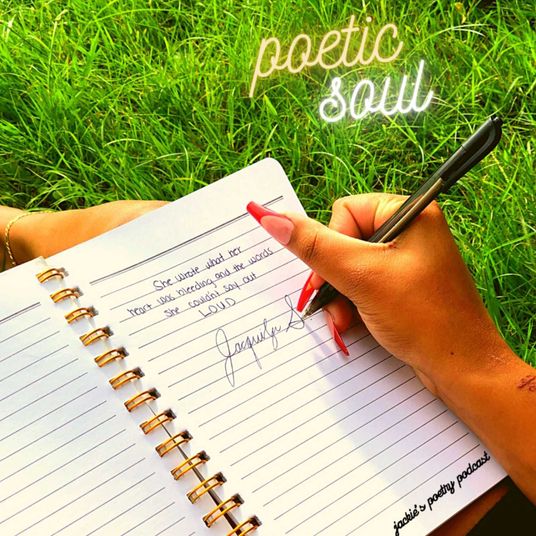 poetic
soul
She wrote what her
heart was bleeding and the words
she couldn't say out
LOUD
Jacquelyn S
jackie's poetry podcast